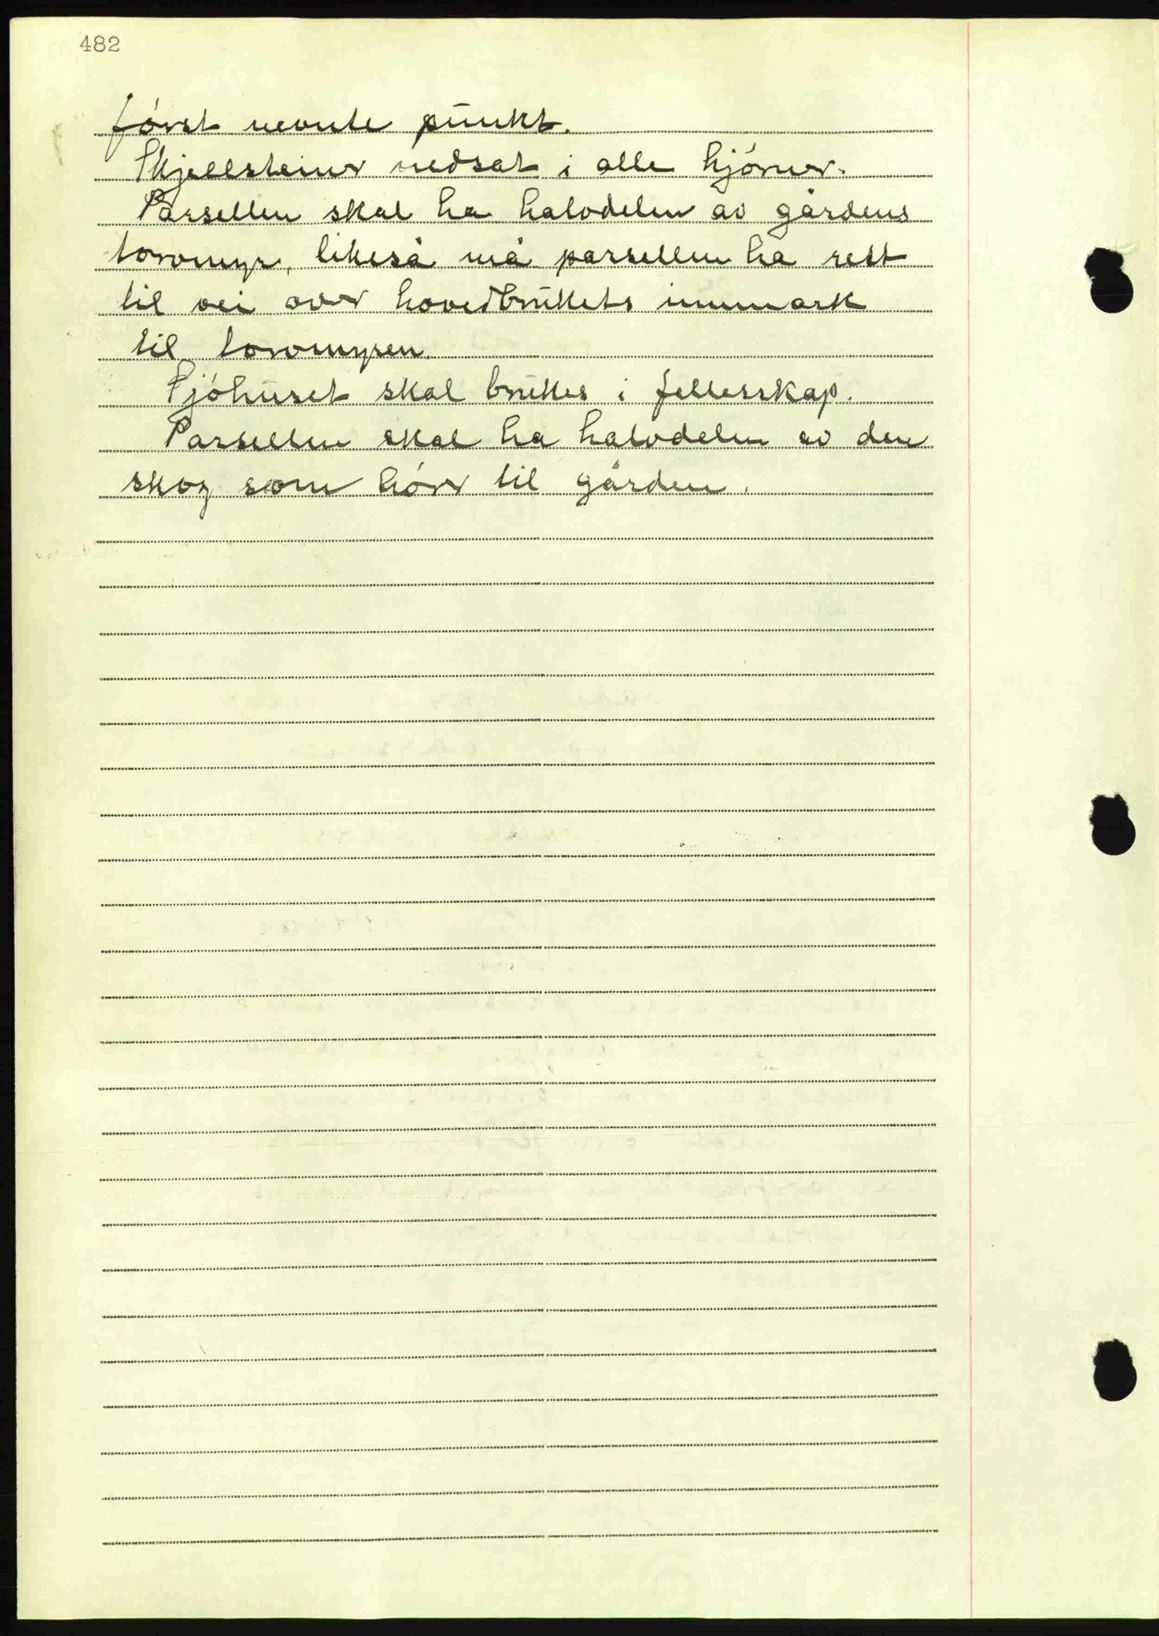 482
først nevnte punkt.
Skjellsteiner nedsat i alle hjørner.
Parsellen skal ha halvdelen av gårdens
torvmyr, likeså må parsellen ha rett
til vei over hovedbrukets innmark
til torvmyren.
Sjøhuset skal brukes i fellesskap.
Parsellen skal ha halvdelen av den
skog som hører til gården.